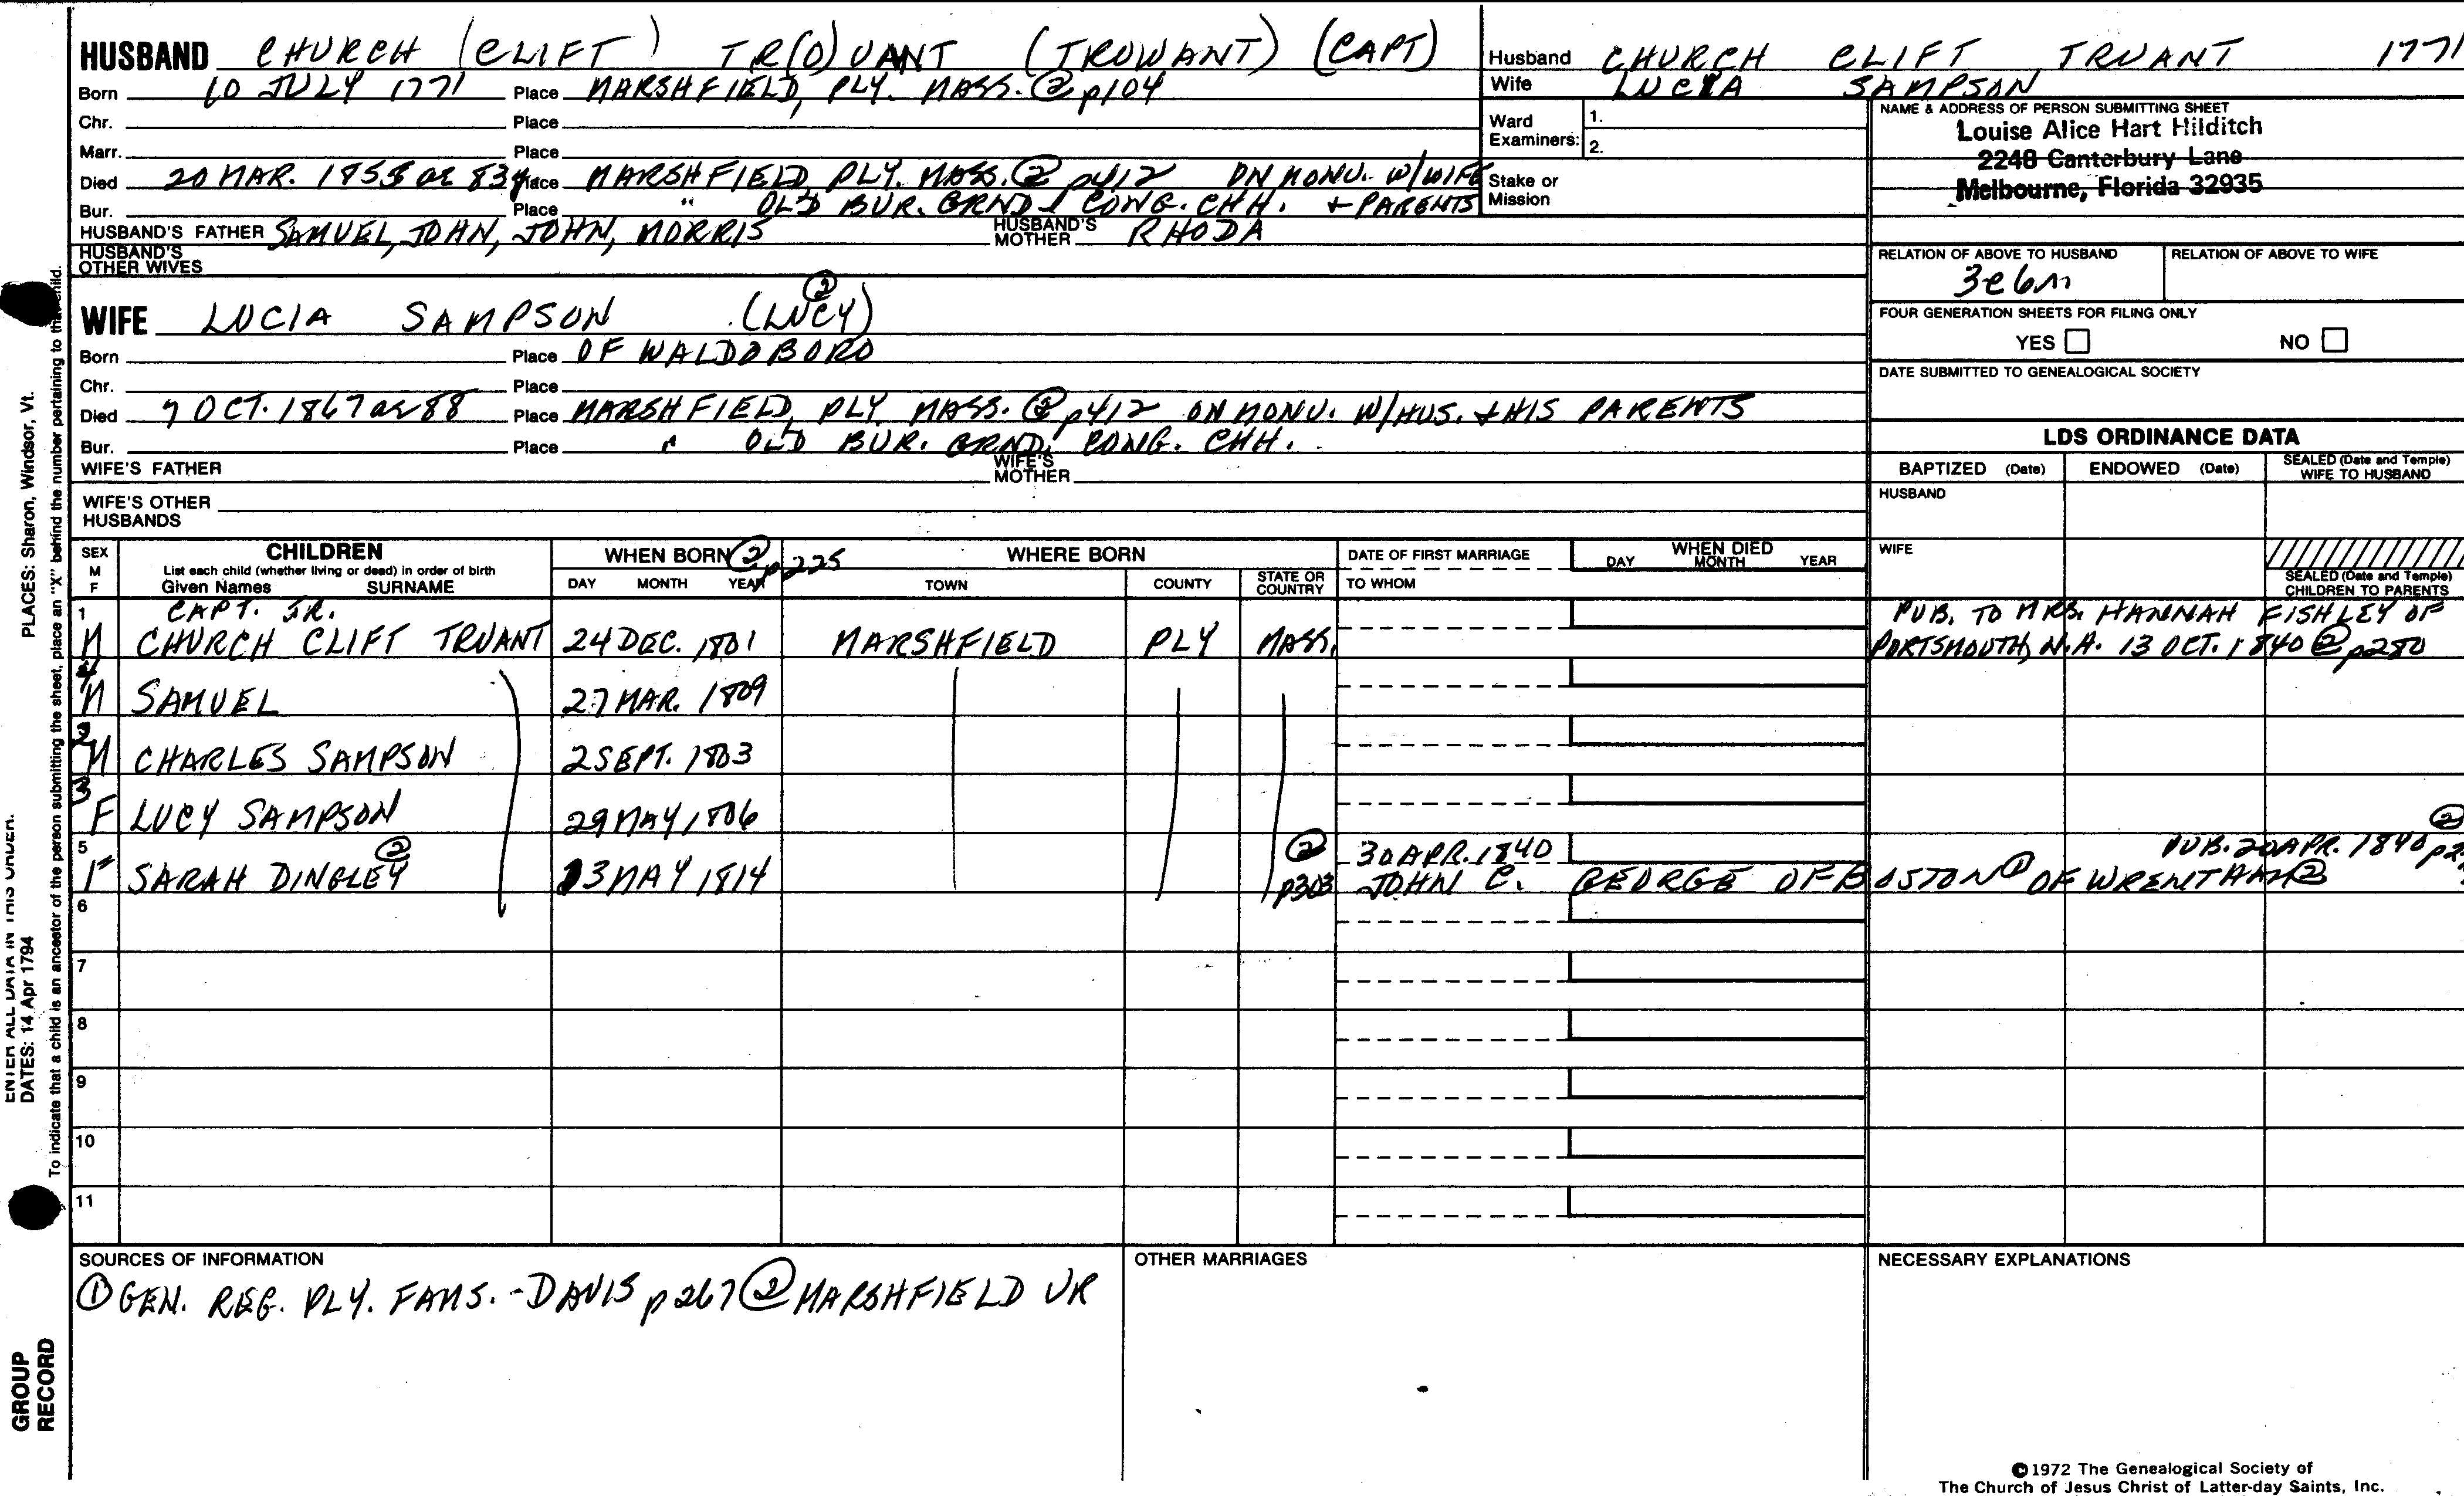 HUSBAND CHURCH (CLIFT) TR(O)UANT (TROWANT) (CAPT)
Born 10 JULY 1771 Place MARSHFIELD, PLY. MASS. ② p104
Chr. Place
Marr. Place
Died 20 MAR. 1855 ae 83y Place MARSHFIELD, PLY. MASS. ② p412 ON MONU. W/WIFE
Bur. Place " OLD BUR. GRND CONG. CHH. + PARENTS
HUSBAND'S FATHER SAMUEL, JOHN, JOHN, MORRIS HUSBAND'S MOTHER RHODA
HUSBAND'S OTHER WIVES
WIFE LUCIA SAMPSON (LUCY) ②
Born Place OF WALDOBORO
Chr. Place
Died 7 OCT. 1867 ae 88 Place MARSHFIELD, PLY. MASS. ② p412 ON MONU. W/HUS. + HIS PARENTS
Bur. Place " OLD BUR. GRND. CONG. CHH.
WIFE'S FATHER WIFE'S MOTHER
WIFE'S OTHER HUSBANDS
Husband CHURCH CLIFT TRUANT 1771
Wife LUCIA SAMPSON
Ward Examiners: 1.
2.
Stake or Mission
NAME & ADDRESS OF PERSON SUBMITTING SHEET
Louise Alice Hart Hilditch
2248 Canterbury Lane
Melbourne, Florida 32935
RELATION OF ABOVE TO HUSBAND RELATION OF ABOVE TO WIFE
3c6r
FOUR GENERATION SHEETS FOR FILING ONLY
YES NO
DATE SUBMITTED TO GENEALOGICAL SOCIETY
LDS ORDINANCE DATA
BAPTIZED (Date) ENDOWED (Date) SEALED (Date and Temple) WIFE TO HUSBAND
HUSBAND
WIFE
SEALED (Date and Temple) CHILDREN TO PARENTS
SEX M F CHILDREN WHEN BORN ② p225 WHERE BORN DATE OF FIRST MARRIAGE WHEN DIED
List each child (whether living or dead) in order of birth
Given Names SURNAME DAY MONTH YEAR TOWN COUNTY STATE OR COUNTRY TO WHOM DAY MONTH YEAR
1 CAPT. JR. PUB. TO MRS. HANNAH FISHLEY OF
M CHURCH CLIFT TRUANT 24 DEC. 1801 MARSHFIELD PLY MASS. PORTSMOUTH, N.H. 13 OCT. 1840 ② p280
4
M SAMUEL 27 MAR. 1809
2
M CHARLES SAMPSON 2 SEPT. 1803
3
F LUCY SAMPSON 29 MAY 1806
5 ② ② 30 APR. 1840 PUB. 20 APR. 1840 ②
F SARAH DINGLEY 13 MAY 1814 p303 JOHN C. GEORGE OF BOSTON ① OF WRENTHAM ②
6
7
8
9
10
11
SOURCES OF INFORMATION
① GEN. REG. PLY. FAMS. - DAVIS p 267 ② MARSHFIELD VR
OTHER MARRIAGES
NECESSARY EXPLANATIONS
©1972 The Genealogical Society of
The Church of Jesus Christ of Latter-day Saints, Inc.
PLACES: Sharon, Windsor, Vt.
To indicate that a child is an ancestor of the person submitting the sheet, place an "X" behind the number pertaining to that child.
ENTER ALL DATA IN THIS ORDER:
DATES: 14 Apr 1794
GROUP
RECORD